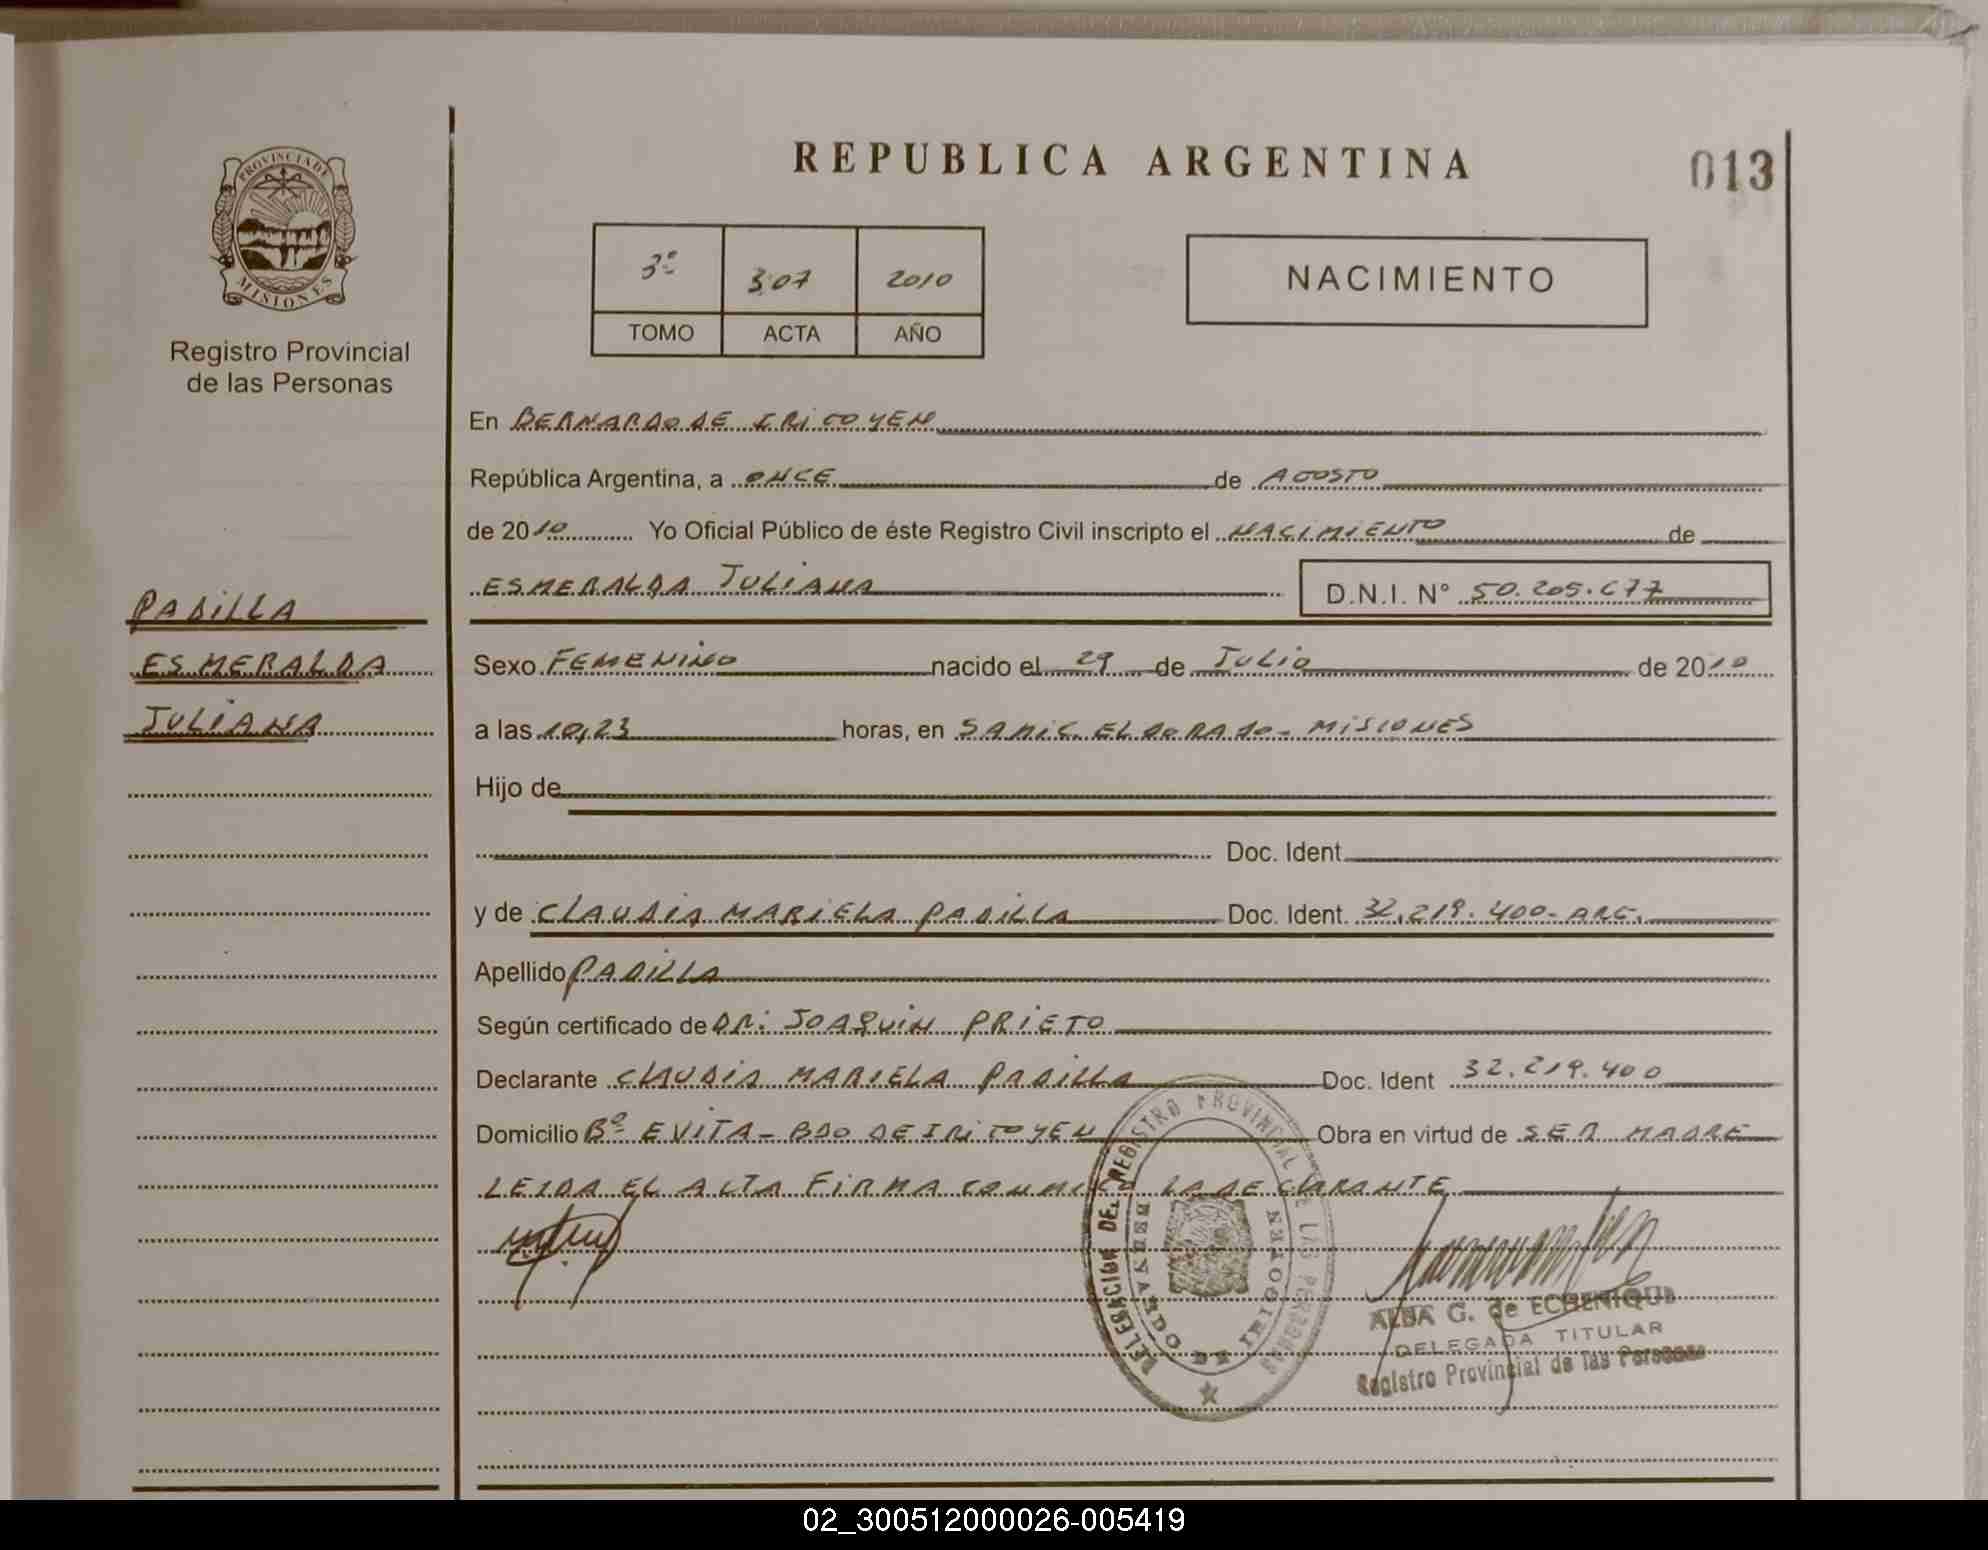 REPUBLICA ARGENTINA
013
PROVINCIA DE
MISIONES
Registro Provincial
de las Personas
3º 307 2010
TOMO ACTA AÑO
NACIMIENTO
En BERNARDO DE IRIGOYEN
República Argentina, a ONCE de AGOSTO
de 2010 Yo Oficial Público de éste Registro Civil inscripto el NACIMIENTO de
ESMERALDA JULIANA D.N.I. Nº 50.205.677
PADILLA
ESMERALDA
JULIANA
Sexo FEMENINO nacido el 29 de JULIO de 2010
a las 10,23 horas, en SAMIC. ELDORADO - MISIONES
Hijo de
Doc. Ident.
y de CLAUDIA MARIELA PADILLA Doc. Ident. 32.219.400- ARG.
Apellido PADILLA
Según certificado de DR. JOAQUIN PRIETO
Declarante CLAUDIA MARIELA PADILLA Doc. Ident 32.219.400
Domicilio Bº EVITA - BDO DE IRIGOYEN Obra en virtud de SER MADRE
LEIDA EL ACTA FIRMA CONMIGO LA DECLARANTE
DELEGACION DEL REGISTRO PROVINCIAL DE LAS PERSONAS
BERNARDO DE IRIGOYEN
ALBA G. de ECHENIQUE
DELEGADA TITULAR
Registro Provincial de las Personas
02_300512000026-005419